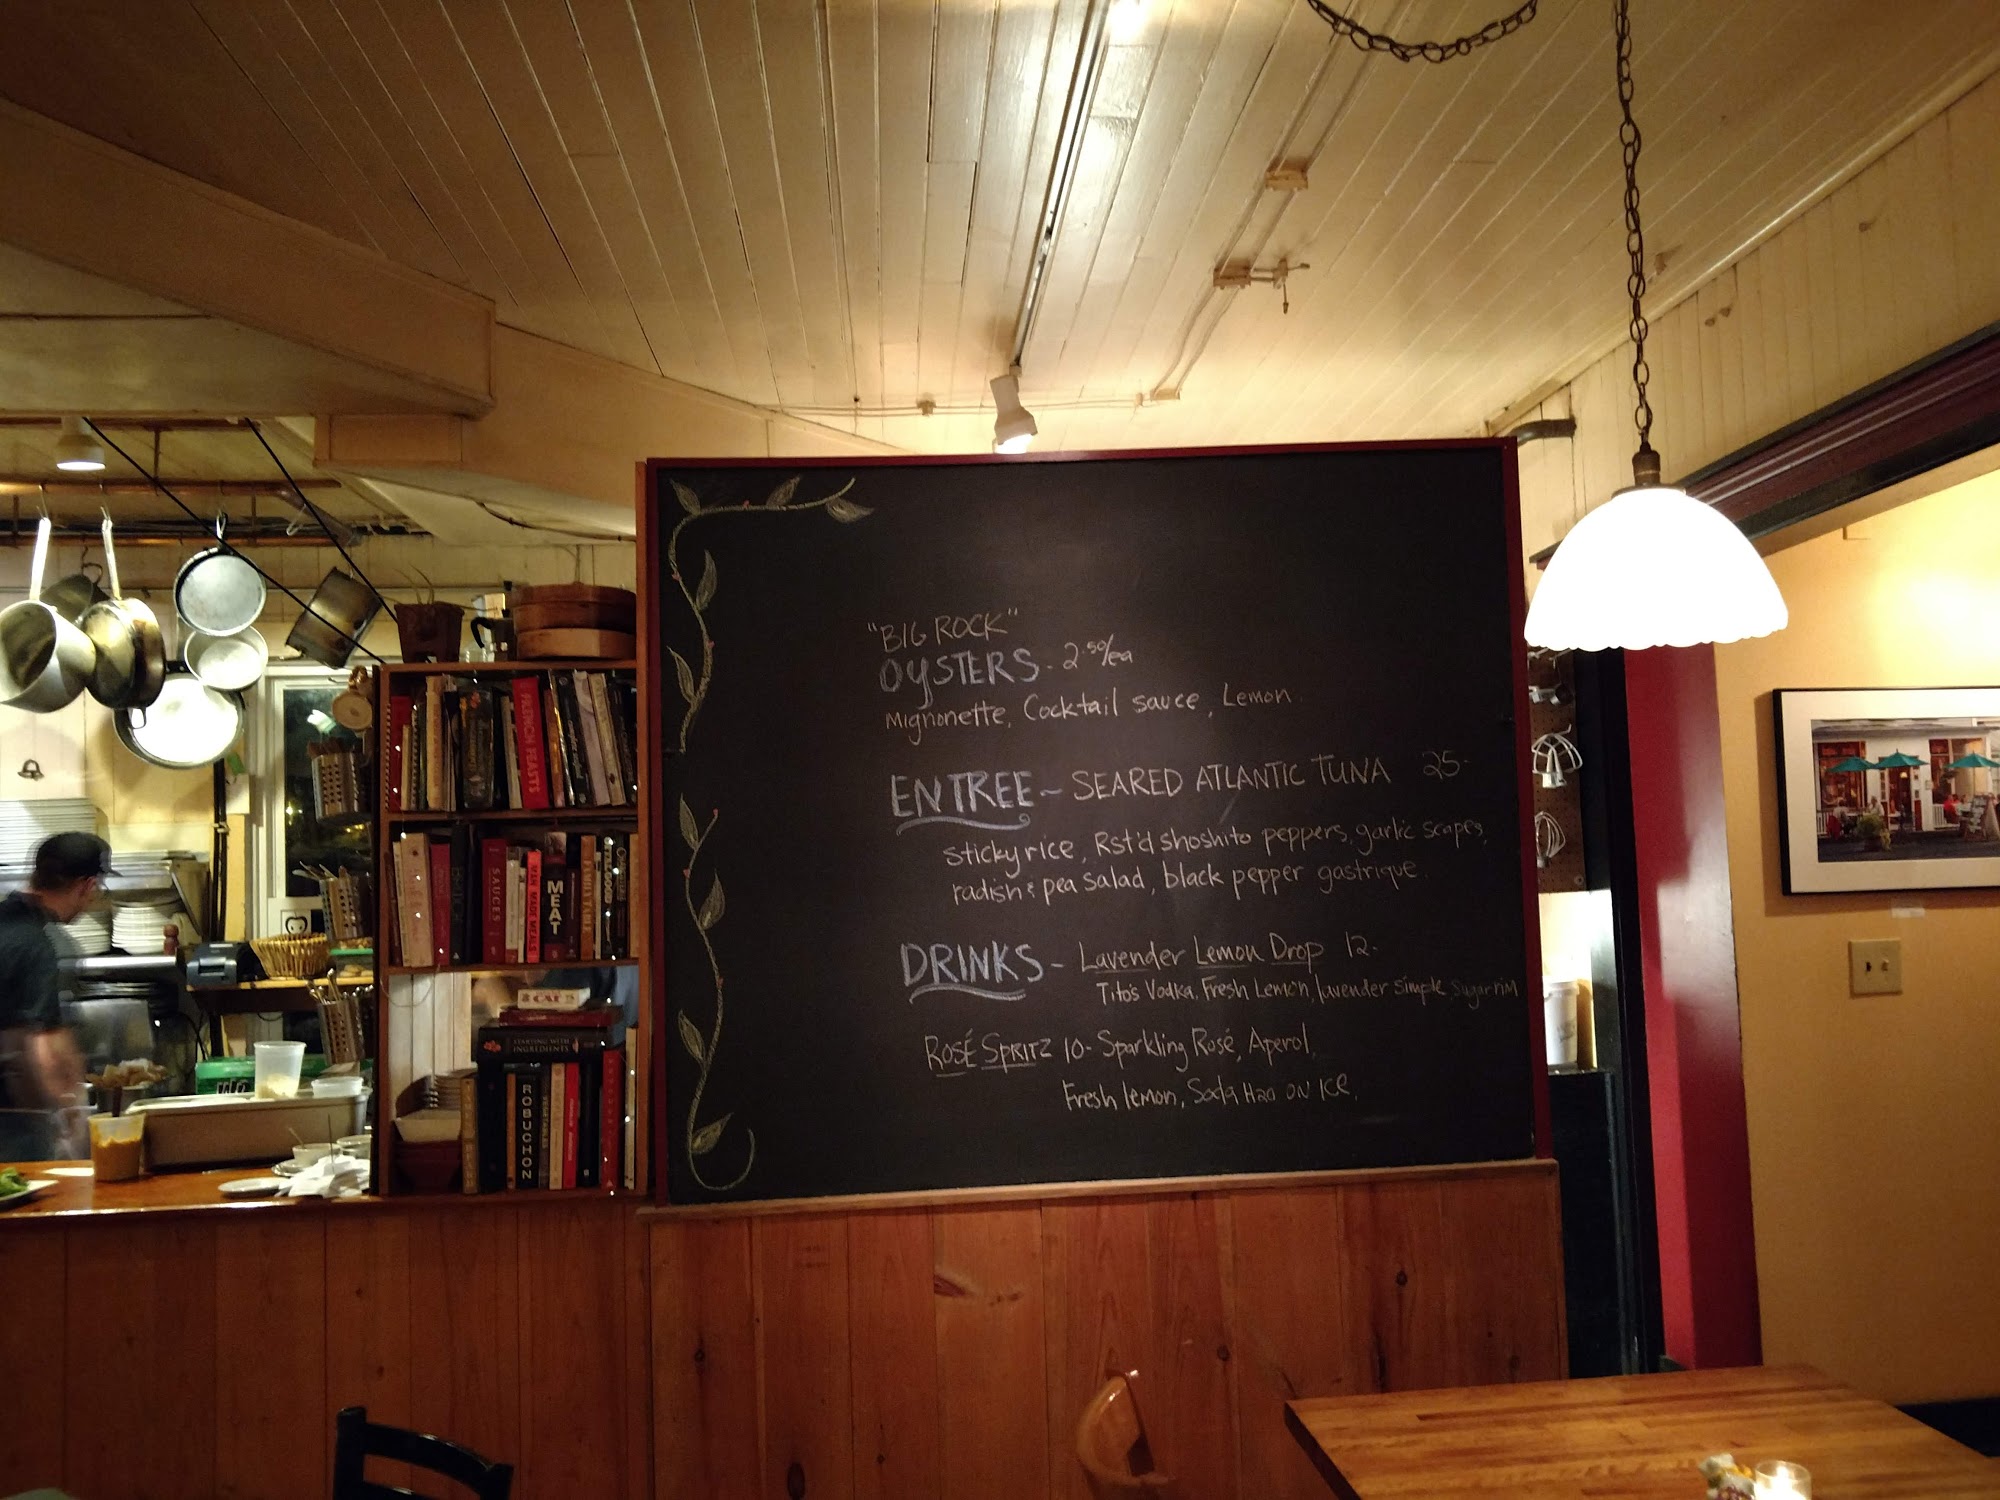 "BIG ROCK"
OYSTERS - 2.50/ea
Mignonette, Cocktail sauce, Lemon
ENTREE ~ SEARED ATLANTIC TUNA 25-
sticky rice, Rst'd shoshito peppers, garlic scapes,
radish & pea salad, black pepper gastrique.
DRINKS - Lavender Lemon Drop 12-
Tito's Vodka, Fresh Lemon, lavender simple sugar rim
ROSÉ SPRITZ 10- Sparkling Rosé, Aperol,
Fresh lemon, Soda H2O ON ICE.
FRENCH FEASTS
SAUCES
MAN MADE MEALS
MEAT
FAMILY TABLE
STARTING WITH
INGREDIENTS
ROBUCHON
VEGETABLES